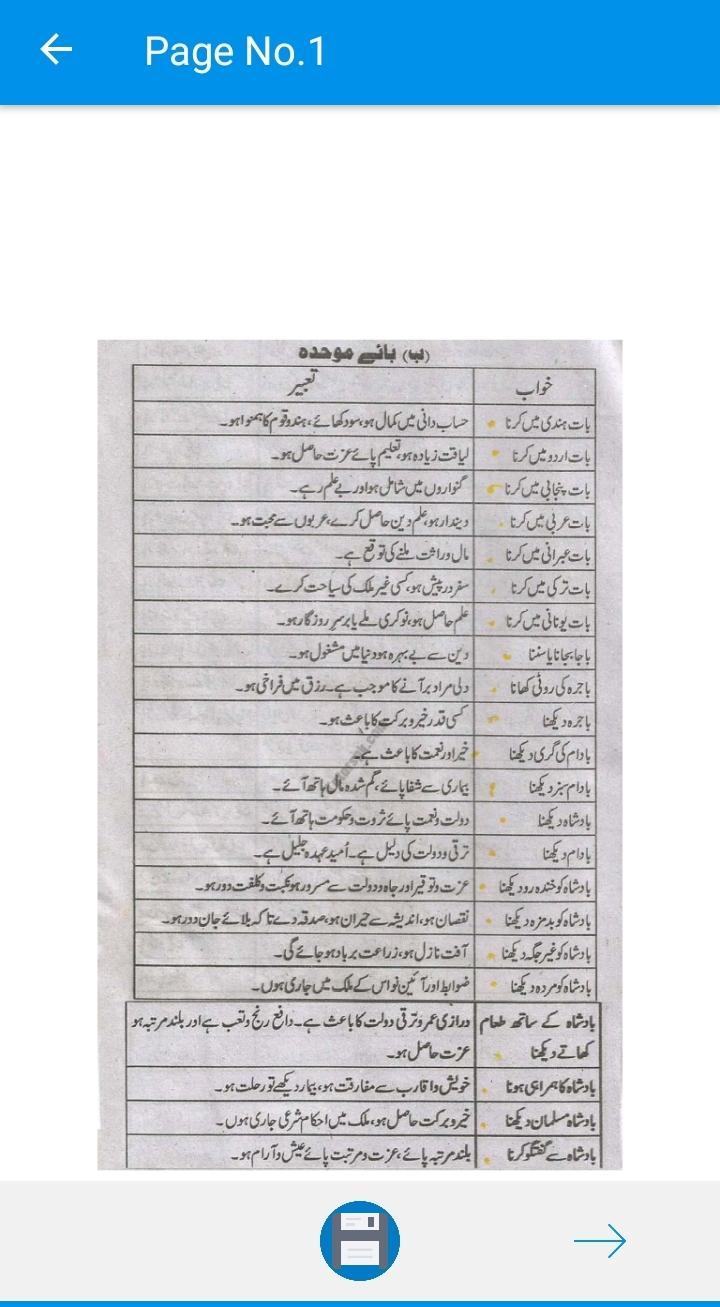 Page No.1
(ب) بائے موحدہ
خواب تعبیر
بات ہندی میں کرنا حساب دانی میں کمال ہو، سود کھائے، ہندو قوم کا ہمنوا ہو۔
بات اردو میں کرنا لیاقت زیادہ ہو، تعلیم پائے عزت حاصل ہو۔
بات پنجابی میں کرنا گنواروں میں شامل ہو اور بے علم رہے۔
بات عربی میں کرنا دیندار ہو، علم دین حاصل کرے، عربوں سے محبت ہو۔
بات عبرانی میں کرنا مال وراثت ملنے کی توقع ہے۔
بات ترکی میں کرنا سفر درپیش ہو، کسی غیر ملک کی سیاحت کرے۔
بات یونانی میں کرنا علم حاصل ہو، نوکری ملے یا برسرِ روزگار ہو۔
باجا بجانا یا سننا دین سے بے بہرہ ہو دنیا میں مشغول ہو۔
باجرہ کی روٹی کھانا دلی مراد بر آنے کا موجب ہے۔ رزق میں فراخی ہو۔
باجرہ دیکھنا کسی قدر خیر و برکت کا باعث ہو۔
بادام کی گری دیکھنا خیر اور نعمت کا باعث ہے۔
بادام سبز دیکھنا بیماری سے شفا پائے، گم شدہ مال ہاتھ آئے۔
بادشاہ دیکھنا دولت و نعمت پائے ثروت و حکومت ہاتھ آئے۔
بادام دیکھنا ترقی و دولت کی دلیل ہے۔ اُمید عہدہ جلیل ہے۔
بادشاہ کو خندہ رو دیکھنا عزت و توقیر اور جاہ و دولت سے مسرور ہو نکبت و کلفت دور ہو۔
بادشاہ کو بدمزہ دیکھنا نقصان ہو، اندیشہ سے حیران ہو، صدقہ دے تاکہ بلائے جان دور ہو۔
بادشاہ کو غیر جگہ دیکھنا آفت نازل ہو، زراعت برباد ہو جائے گی۔
بادشاہ کو مردہ دیکھنا ضوابط اور آئین نو اس کے ملک میں جاری ہوں۔
بادشاہ کے ساتھ طعام درازی عمر و ترقی دولت کا باعث ہے۔ دافع رنج و تعب ہے اور بلند مرتبہ ہو
کھاتے دیکھنا عزت حاصل ہو۔
بادشاہ کا ہمراہی ہونا خویش و اقارب سے مفارقت ہو، بیمار دیکھے تو رحلت ہو۔
بادشاہ مسلمان دیکھنا خیر و برکت حاصل ہو، ملک میں احکام شرعی جاری ہوں۔
بادشاہ سے گفتگو کرنا بلند مرتبہ پائے، عزت و مرتبت پائے عیش و آرام ہو۔